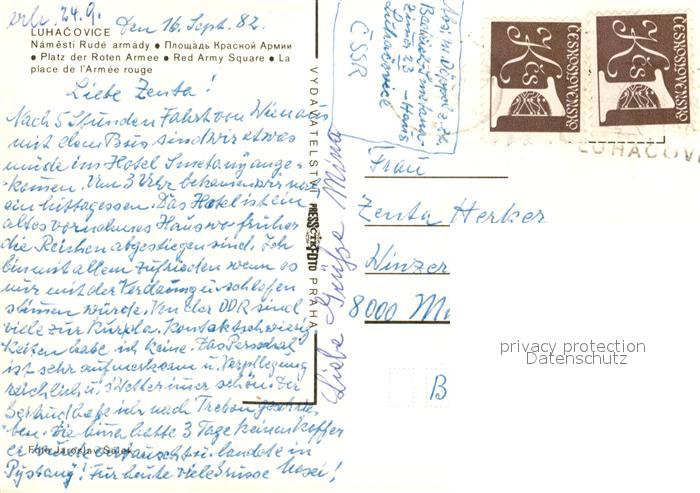 erh. 24.9.
Den 16. Sept. 82.
LUHAČOVICE
Náměstí Rudé armády • Площадь Красной Армии
• Platz der Roten Armee • Red Army Square • La
place de l'Armée rouge
Liebe Zenta!
Nach 5 Stunden Fahrt von Wien aus
mit dem Bus sind wir etwas
müde im Hotel Smetana ange-
kommen. Um 3 Uhr bekamen wir noch
ein Mittagessen. Das Hotel ist ein
altes vornehmes Haus wo früher
die Reichen abgestiegen sind. Ich
bin mit allem zufrieden wenn es
nur mit der Verdauung u. schlafen
stimmen würde. Von der DDR sind
viele zur Kur da. Kontaktschwierig-
keiten habe ich keine. Das Personal
ist sehr aufmerksam u. Verpflegung
reichlich u. s'Wetter immer schön. Der
Gertrud habe ich nach Trebon geschrie-
ben. Die hatte 3 Tage keinen Koffer
er wurde vertauscht u. landete in
Pystany! Für heute viele Grüsse
Foto Jaroslav
VYDAVATELSTVÍ PRESSFOTO PRAHA
Liebe Grüße Mina
Zimmer 23
Luhacovice
ČSSR
ČESKOSLOVENSKO
Kčs
ČESKOSLOVENSKO
Kčs
LUHAČOV
Frau
Zenta Herker
Winzer
8000 M
B
privacy protection
Datenschutz